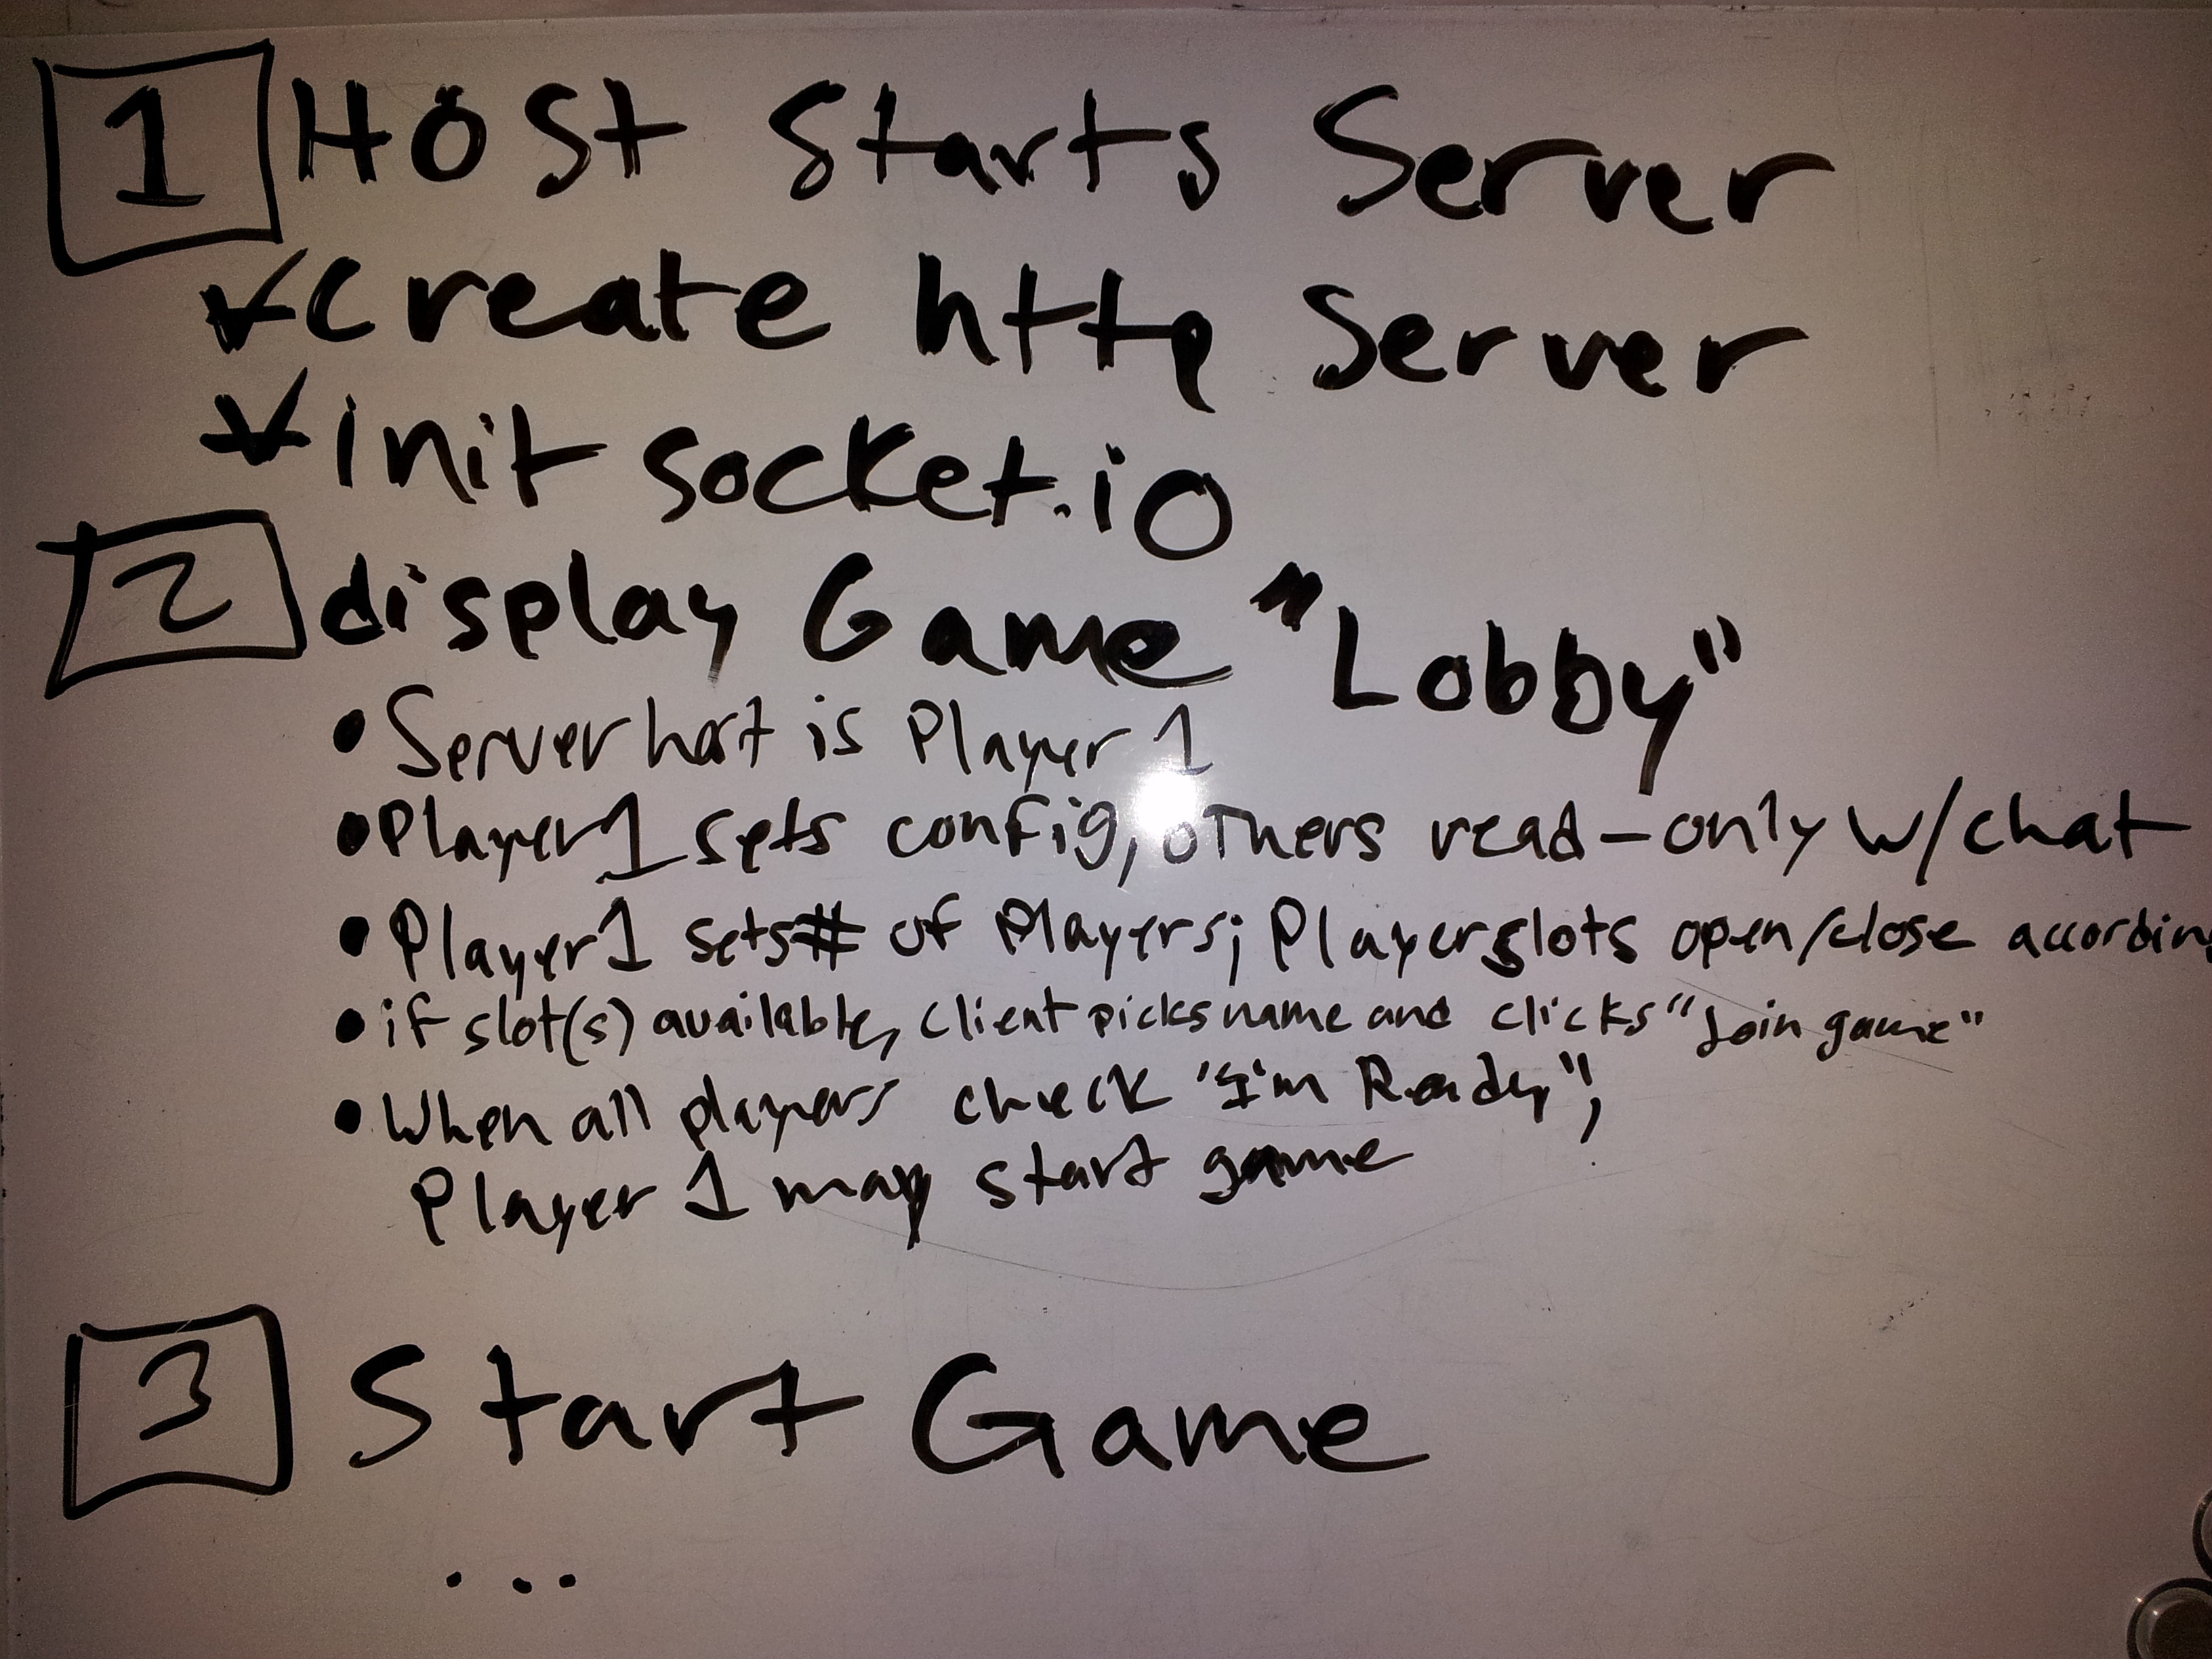 1 Host Starts Server
✓ create http Server
✓ init socket.io
2 display Game "Lobby"
• Server host is Player 1
• Player 1 sets config, others read-only w/chat
• Player 1 sets # of Players; Player slots open/close accordin
• if slot(s) available, client picks name and clicks "Join game"
• When all players check "I'm Ready",
Player 1 may start game
3 Start Game
...